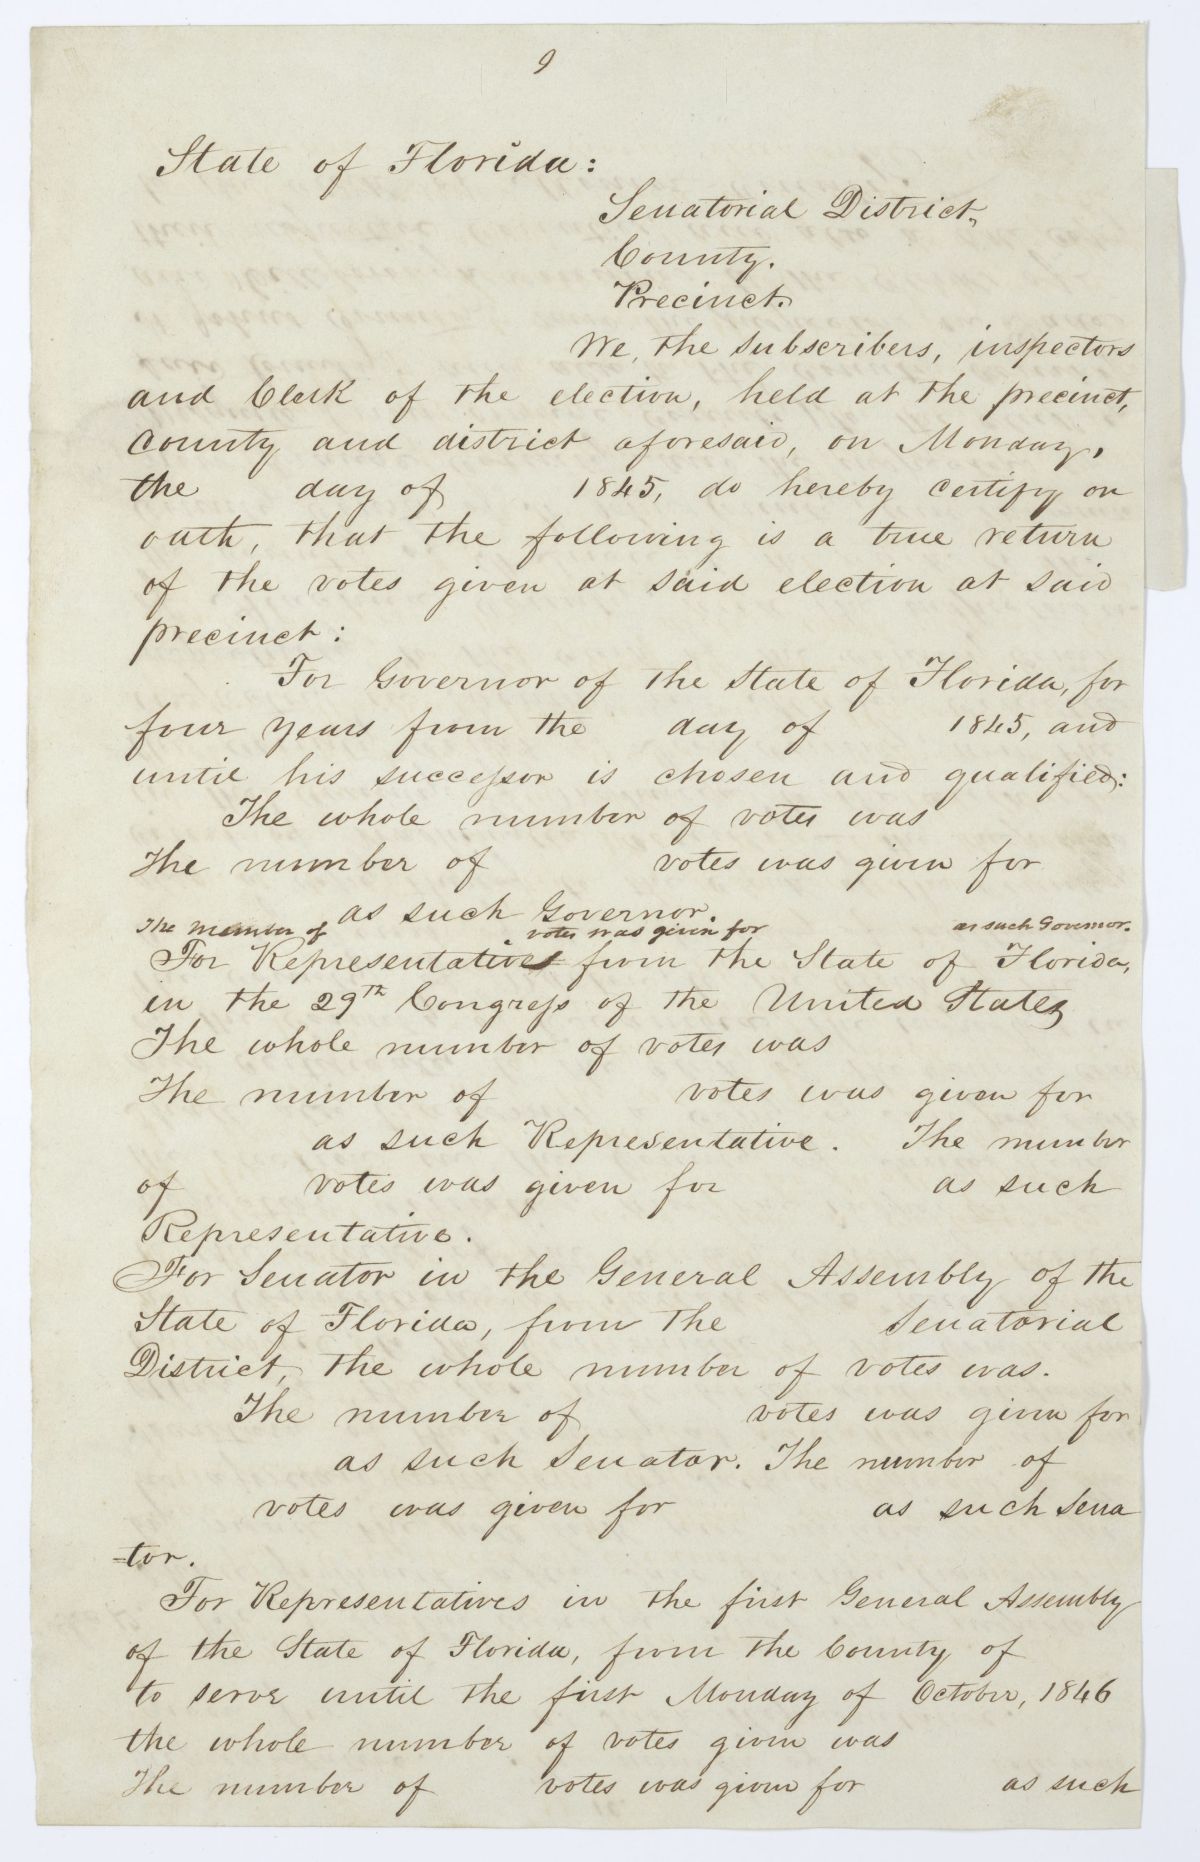 9
State of Florida:
Senatorial District,
County.
Precinct.
We, the subscribers, inspectors
and Clerk of the election, held at the precinct,
County and district aforesaid, on Monday,
the day of 1845, do hereby certify on
oath, that the following is a true return
of the votes given at said election at said
precinct:
For Governor of the State of Florida, for
four years from the day of 1845, and
until his successor is chosen and qualified:
The whole number of votes was
The number of votes was given for
as such Governor.
The number of votes was given for as such Governor.
For Representatives from the State of Florida,
in the 29th Congress of the United States,
The whole number of votes was
The number of votes was given for
as such Representative. The number
of votes was given for as such
Representative.
For Senator in the General Assembly of the
State of Florida, from the Senatorial
District, the whole number of votes was.
The number of votes was given for
as such Senator. The number of
votes was given for as such Sena
=tor.
For Representatives in the first General Assembly
of the State of Florida, from the County of
to serve until the first Monday of October, 1846
the whole number of votes given was
The number of votes was given for as such